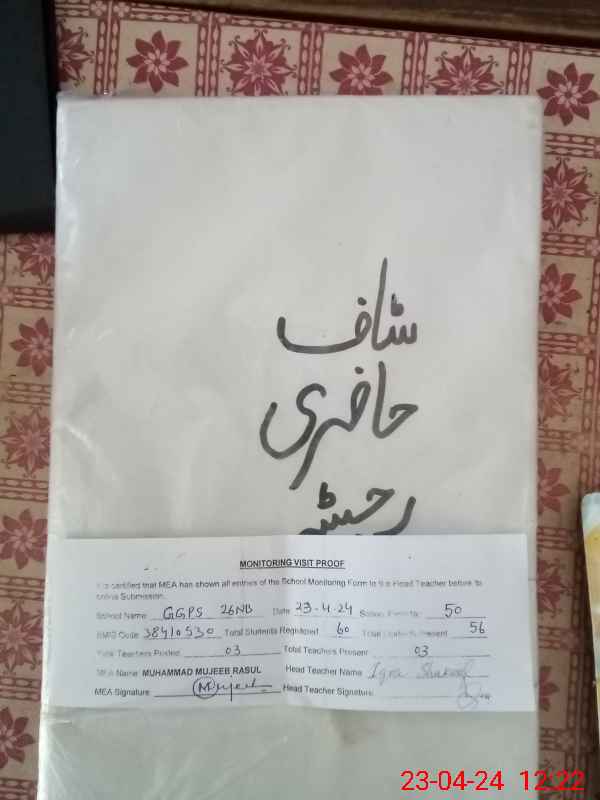 شاف
حاضری
رجسٹر
MONITORING VISIT PROOF
is certified that MEA has shown all entries of the School Monitoring Form to the Head Teacher before
online Submission.
School Name GGPS 26NB Date 23-4-24 School Form No 50
EMIS Code 38410530 Total Students Registered 60 Total Present 56
Total Teachers Posted 03 Total Teachers Present 03
MEA Name: MUHAMMAD MUJEEB RASUL Head Teacher Name Iqra
MEA Signature Mujeeb Head Teacher Signature
23-04-24 12:22